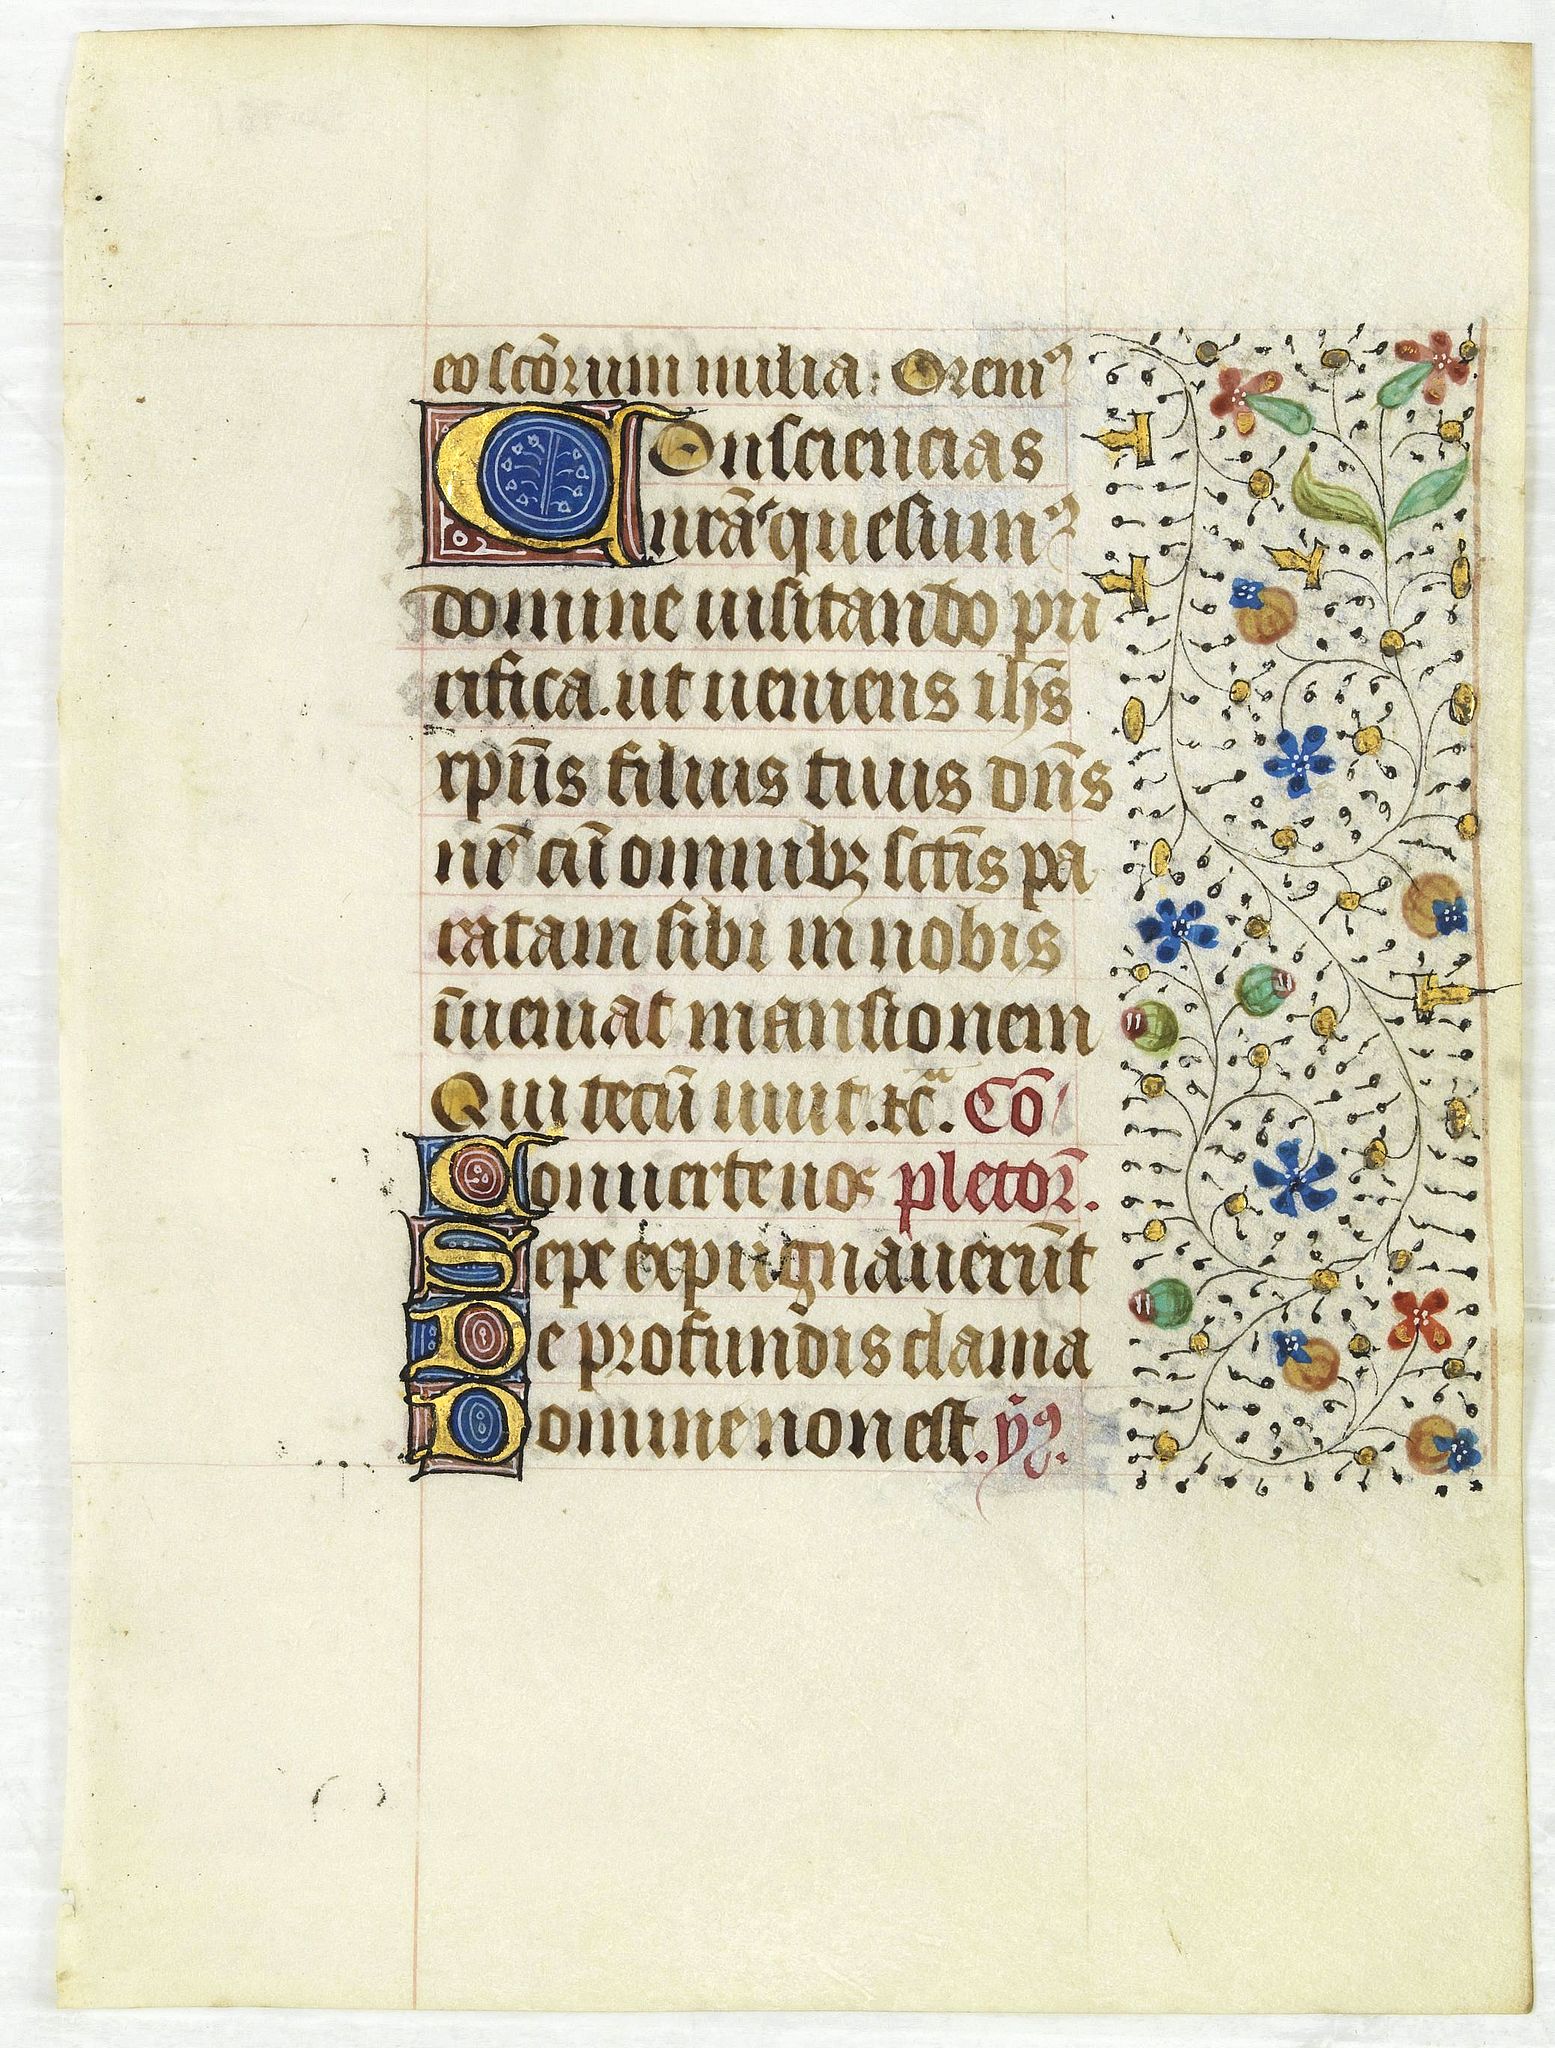 eo scōrum milia. Orem⁹
Consciencias
nr̄as quesum⁹
domine uisitando pu
rifica. ut ueniens ih̄s
xpūs filius tuus dn̄s
nr̄ cū omnibꝫ sctīs pa
ratam sibi in nobis
īueniat mansionem
Qui tecū uiuit. ⁊cᵃ. Cō
Conuerte nos pletoꝝ.
Sepe expugnauerūt
De profundis clama
Domine non est. ym̄⁹.